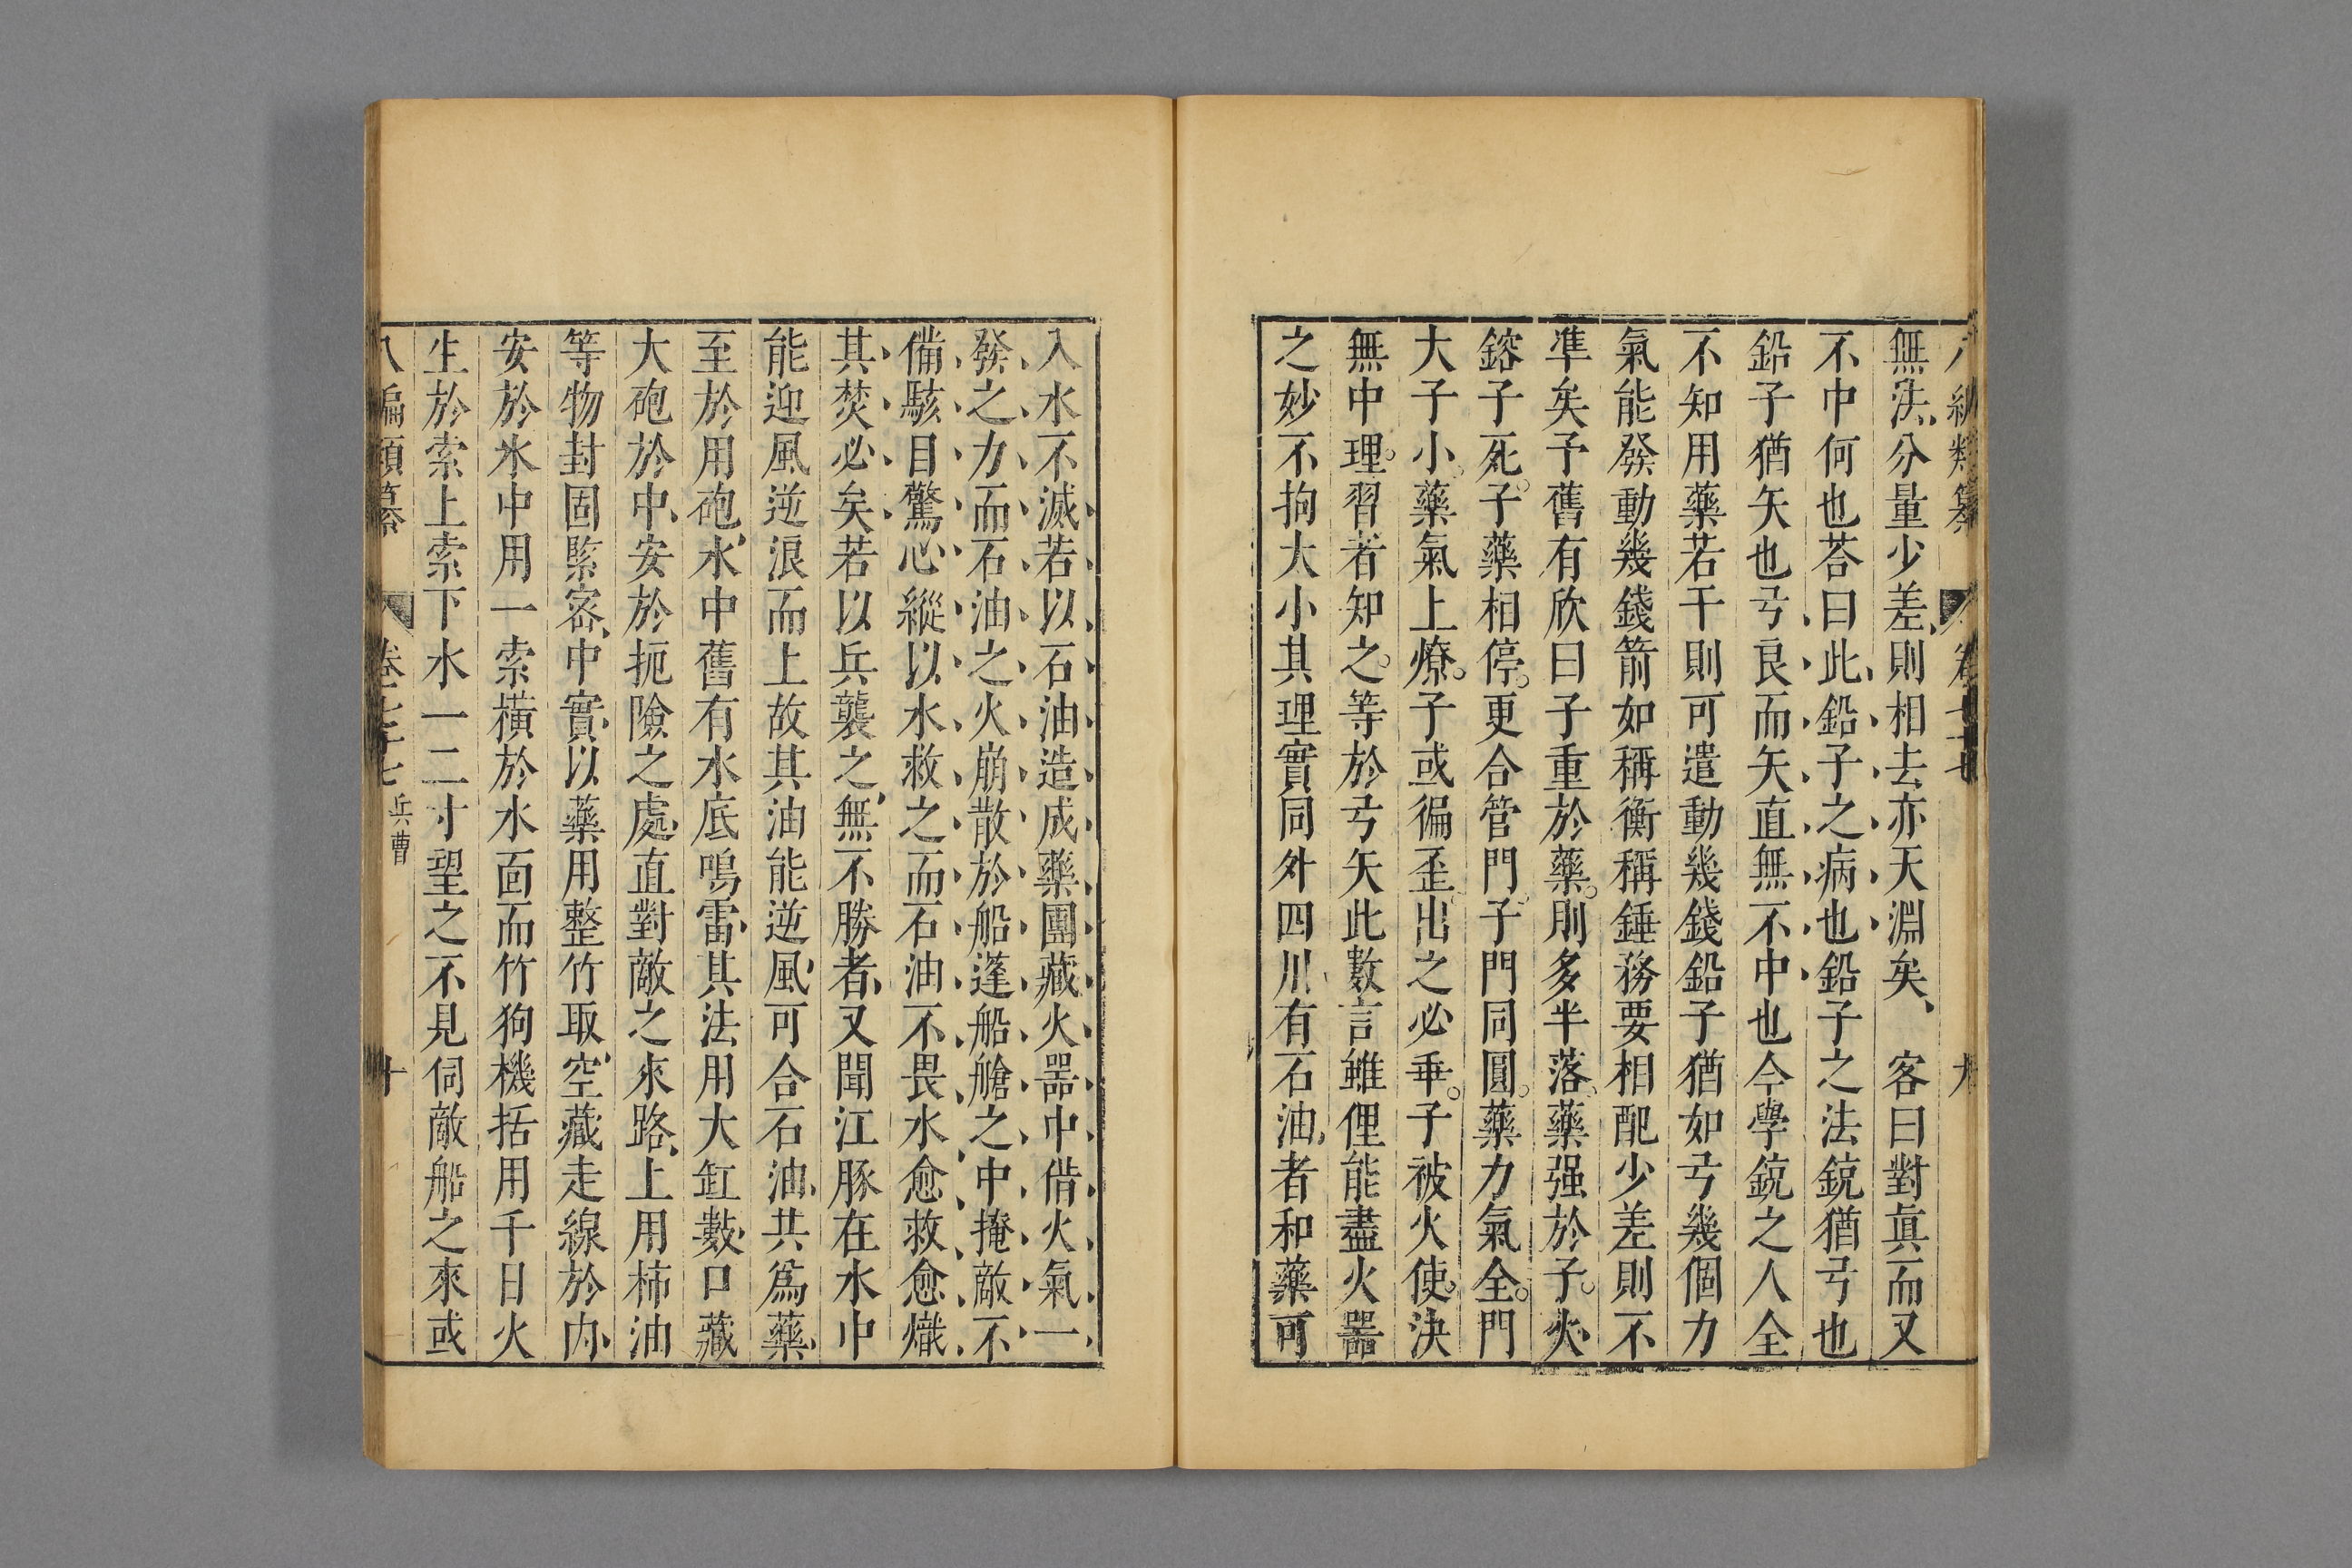 八編類纂 卷七十七 九
無法分量少差則相去亦天淵矣 客曰對眞而又
不中何也荅曰此鉛子之病也鉛子之法銃猶弓也
鉛子猶矢也弓良而矢直無不中也今學銃之人全
不知用藥若干則可遣動幾錢鉛子猶如弓幾個力
氣能發動幾錢箭如稱衡稱錘務要相配少差則不
準矣予舊有欣曰子重於藥則多半落藥强於子火
鎔子死子藥相停更合管門子門同圓藥力氣全門
大子小藥氣上燎子或徧歪出之必垂子被火使決
無中理習者知之等於弓矢此數言雖俚能盡火噐
之妙不拘大小其理實同外四川有石油者和藥可
入水不滅若以石油造成藥團藏火噐中借火氣一
發之力而石油之火崩散於船蓬船艙之中掩敵不
備駭目驚心縱以水救之而石油不畏水愈救愈熾
其焚必矣若以兵襲之無不勝者又聞江豚在水中
能迎風逆浪而上故其油能逆風可合石油共爲藥
至於用砲水中舊有水底鳴雷其法用大缸數口藏
大砲於中安於扼險之處直對敵之來路上用柿油
等物封固緊密中實以藥用整竹取空藏走線於内
安於水中用一索橫於水面而竹狗機括用千日火
生於索上索下水一二寸望之不見伺敵船之來或
八編類纂 卷七十七 兵曹 十